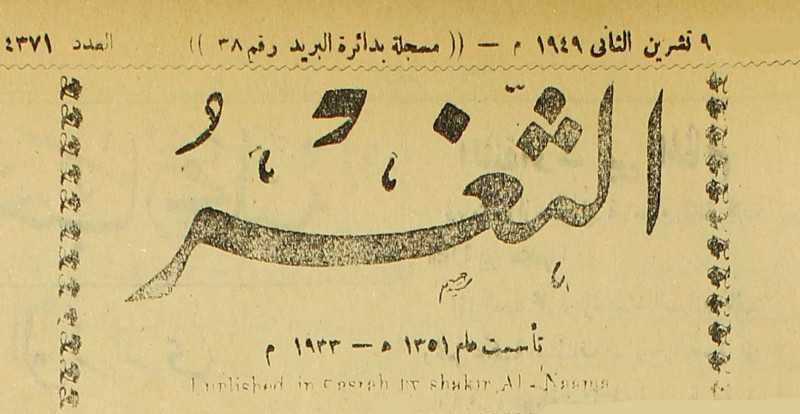 ٩ تشرين الثاني ١٩٤٩ م — (( مسجلة بدائرة البريد رقم ٣٨ )) العدد ٤٣٧١
الثغر
تأسست عام ١٣٥١ ه — ١٩٣٣ م
in shakir Al-Naama